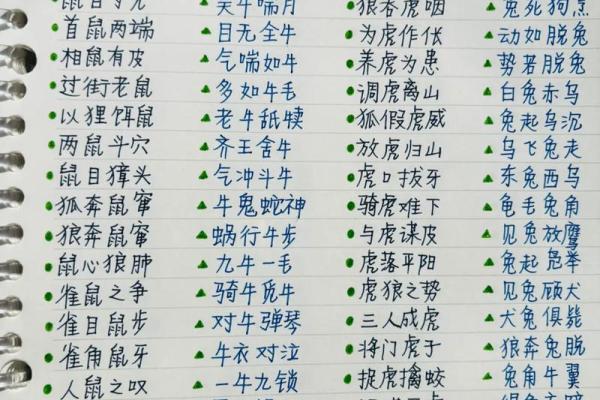 首鼠两端
相鼠有皮
过街老鼠
以狸饵鼠
两鼠斗穴
鼠目獐头
狐奔鼠窜
狼奔鼠窜
鼠心狼肺
雀鼠之争
雀目鼠步
雀角鼠牙
人鼠之叹
吴牛喘月
目无全牛
气喘如牛
多如牛毛
老牛舐犊
齐王舍牛
气冲斗牛
牛鬼蛇神
蜗行牛步
九牛一毛
骑牛觅牛
对牛弹琴
牛衣对泣
一牛九锁
狼吞虎咽
为虎作伥
养虎为患
调虎离山
狐假虎威
放虎归山
虎口拔牙
骑虎难下
与虎谋皮
虎落平阳
虎狼之势
三人成虎
将门虎子
捉虎擒蛟
兔死狗烹
动如脱兔
势若脱兔
白兔赤乌
兔起乌沉
乌飞兔走
东兔西乌
龟毛兔角
见兔放鹰
兔起凫举
见兔顾犬
犬兔俱毙
狼奔兔脱
兔角牛翼